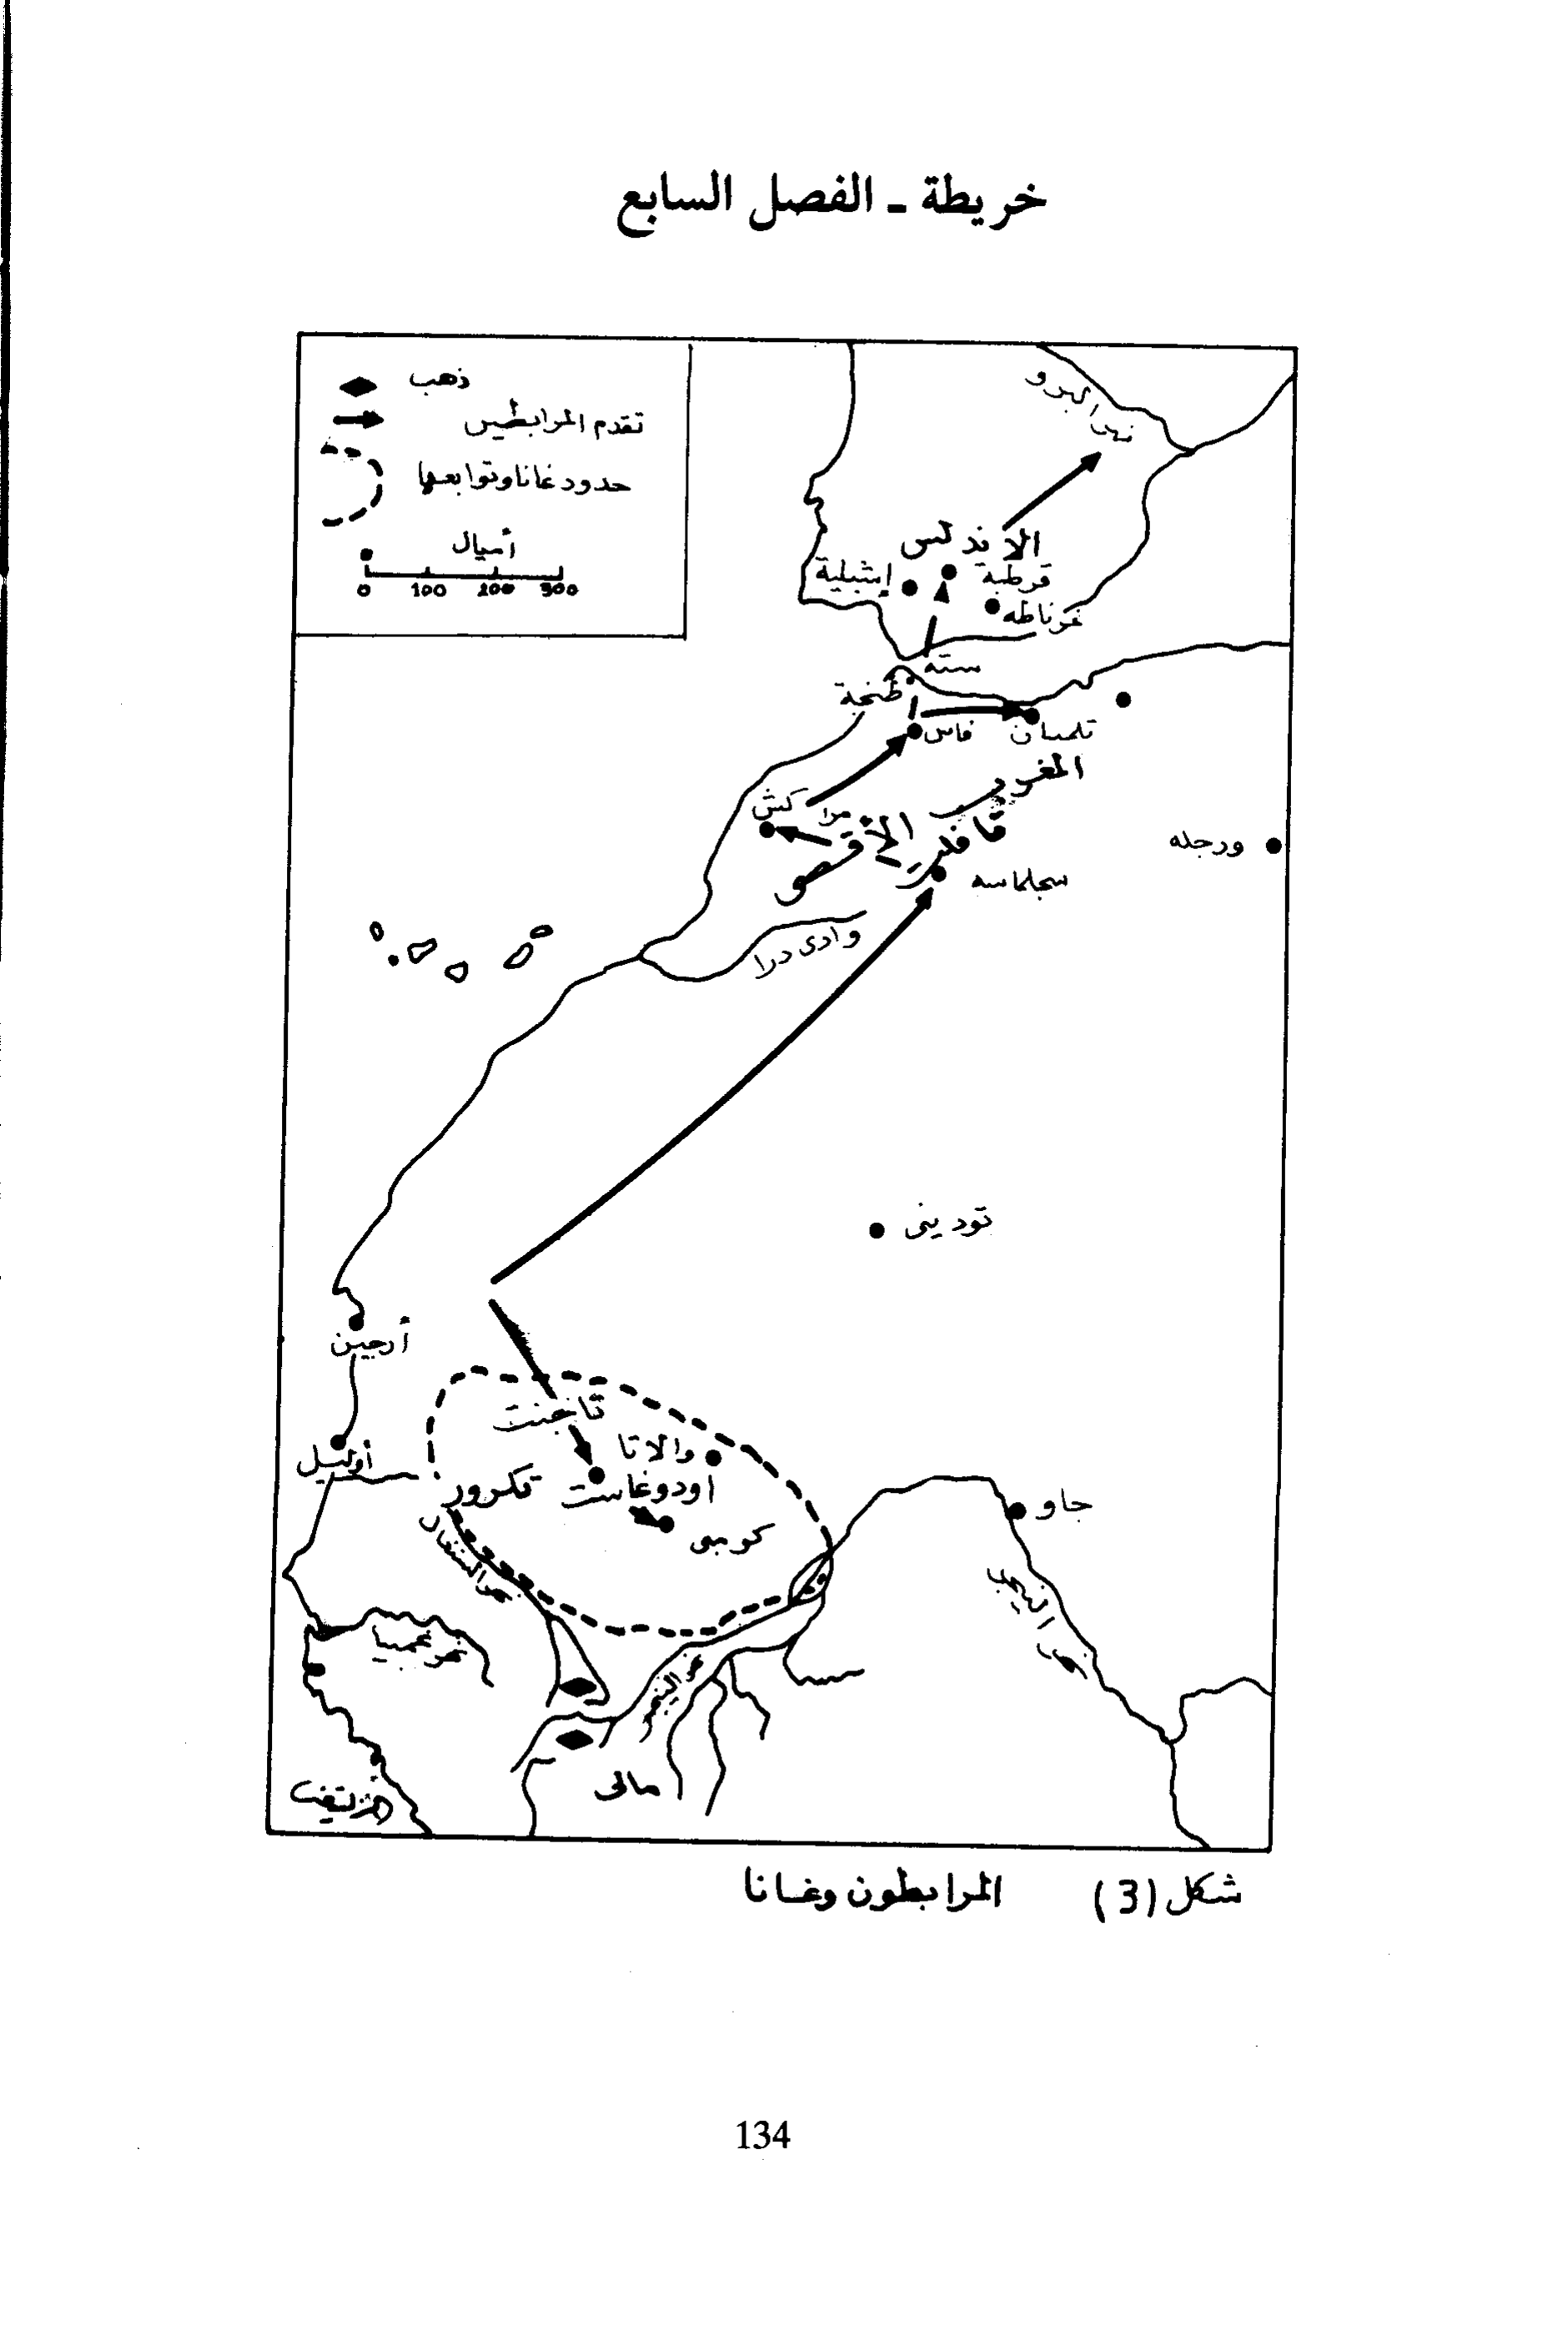 خريطة ـ الفصل السابع
ذهب
تقدم المرابطين
حدود غانا وتوابعها
أميال
0 100 200 300
نهر البرو
الاندلس
قرطبة
إشبيلية
غرناطه
سبته
طنجة
فاس
تلمسان
المغرب
الاقصى
مراكش
تافلت
سجلماسه
ورجله
وادى درا
تودينى
أرجين
تاجنت
والاتا
أوليل
اودوغاست
تكرور
كومبى
جاو
نهر السنغال
نهر النيجر
نهر غمبيا
نهر النيجر
مالى
شكل (3) المرابطون وغانا
134